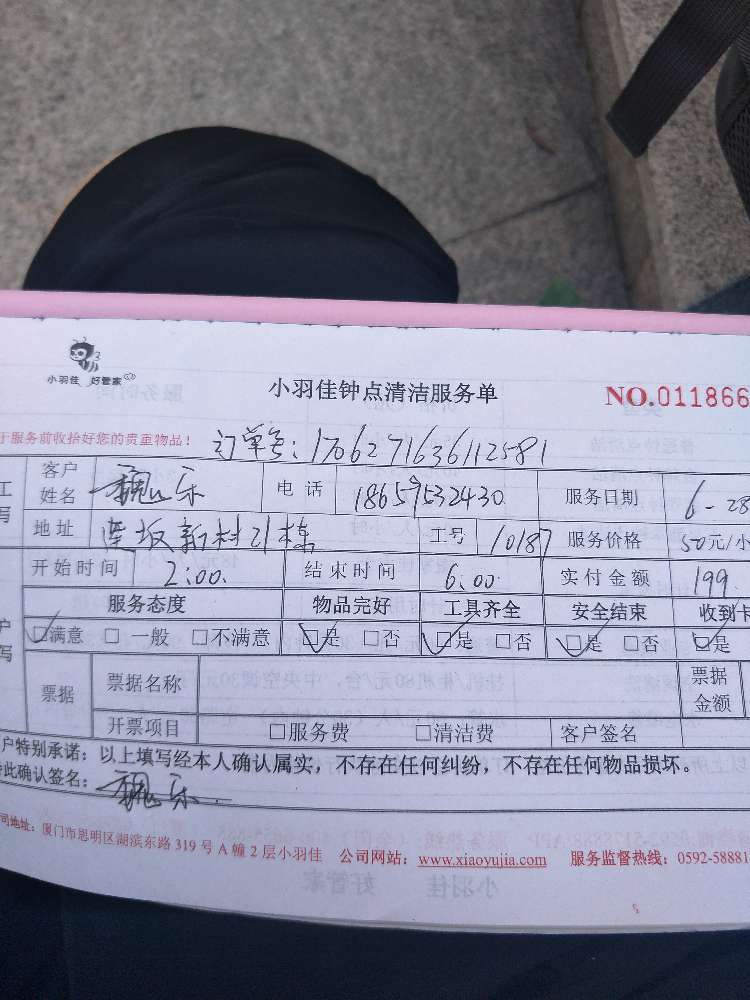 小羽佳 好管家
小羽佳钟点清洁服务单
NO.011866
于服务前收拾好您的贵重物品！ 订单号：1706271636112581
工 客户姓名 魏乐 电话 18659532430 服务日期 6-28
写 地址 坂新村21栋 工号 10187 服务价格 50元/小
开始时间 2:00. 结束时间 6:00 实付金额 199.
服务态度 物品完好 工具齐全 安全结束 收到卡
户 ☑满意 □一般 □不满意 ☑是 □否 ☑是 □否 ☑是 □否 ☑是
写 票据 票据名称 票据金额
开票项目 □服务费 □清洁费 客户签名
户特别承诺：以上填写经本人确认属实，不存在任何纠纷，不存在任何物品损坏。
此确认签名：魏乐.
司地址：厦门市思明区湖滨东路 319 号 A 幢 2 层小羽佳 公司网站：www.xiaoyujia.com 服务监督热线：0592-58881